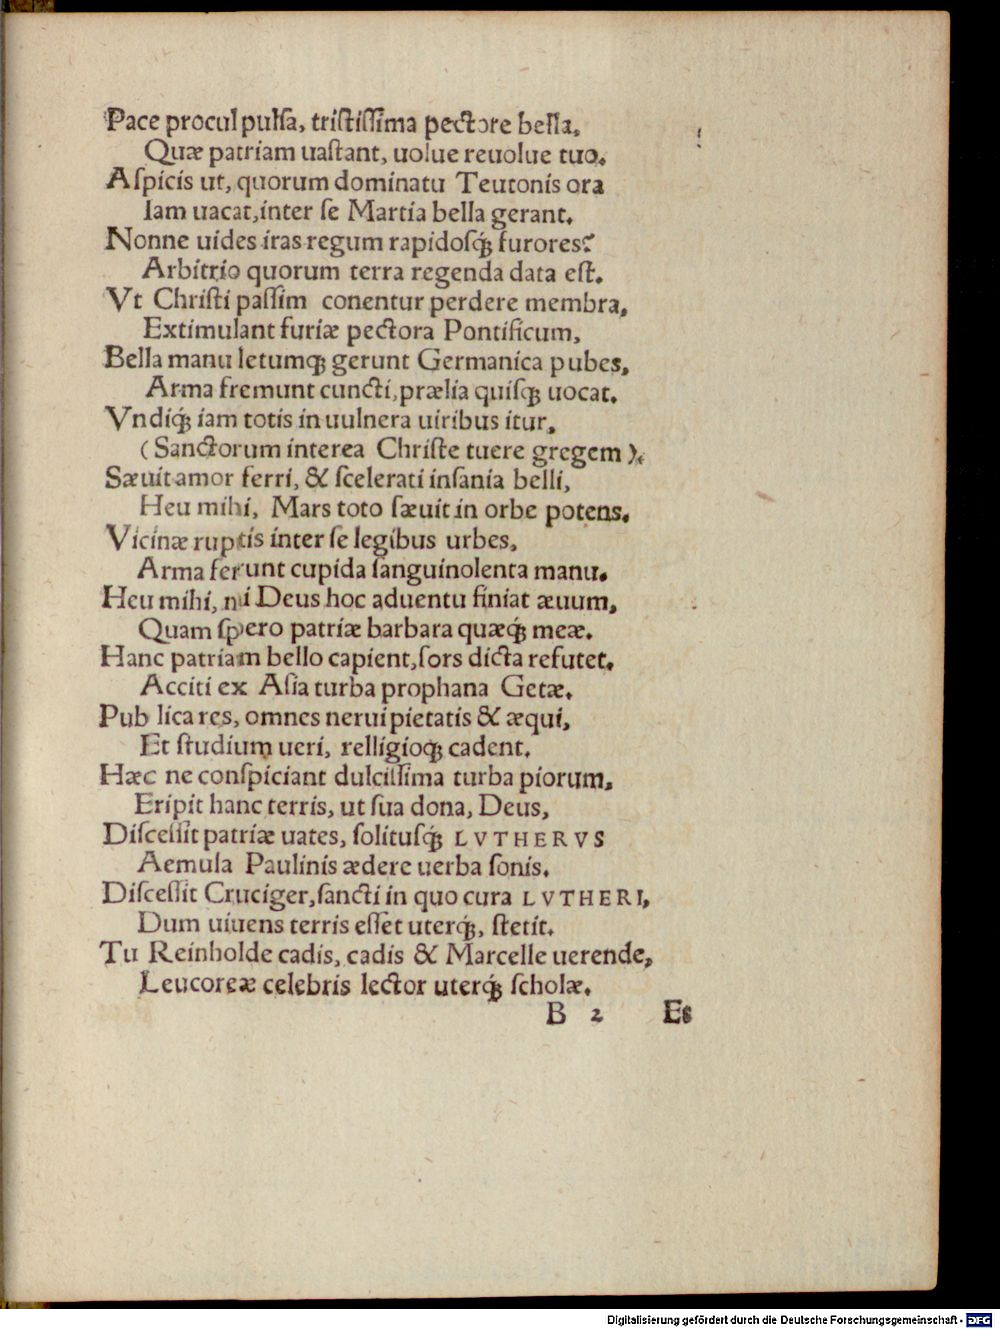 Pace procul pulſa, triſtiſſima pectore bella,
Quæ patriam uaſtant, uolue reuolue tuo.
Aſpicis ut, quorum dominatu Teutonis ora
Iam uacat, inter ſe Martia bella gerant.
Nonne uides iras regum rapidoſq́; furores?
Arbitrio quorum terra regenda data eſt.
Vt Chriſti paſſim conentur perdere membra,
Extimulant furiæ pectora Pontificum,
Bella manu letumq; gerunt Germanica pubes,
Arma fremunt cuncti, prælia quiſq; uocat.
Vndiq́; iam totis in uulnera uiribus itur,
(Sanctorum interea Chriſte tuere gregem).
Sæuit amor ferri, & ſcelerati inſania belli,
Heu mihi, Mars toto ſæuit in orbe potens.
Vicinæ ruptis inter ſe legibus urbes,
Arma ferunt cupida ſanguinolenta manu.
Heu mihi, ni Deus hoc aduentu finiat æuum,
Quam ſpero patriæ barbara quæq́; meæ.
Hanc patriam bello capient, ſors dicta refutet,
Acciti ex Aſia turba prophana Getæ.
Pub lica res, omnes nerui pietatis & æqui,
Et ſtudium ueri, relligioq; cadent.
Hæc ne conſpiciant dulciſſima turba piorum,
Eripit hanc terris, ut ſua dona, Deus,
Diſceſſit patriæ uates, ſolituſq́; LVTHERVS
Aemula Paulinis ædere uerba ſonis.
Diſceſſit Cruciger, ſancti in quo cura LVTHERI,
Dum uiuens terris eſſet uterq́;, ſtetit.
Tu Reinholde cadis, cadis & Marcelle uerende,
Leucoreæ celebris lector uterq́; ſcholæ.
B 2 Et
Digitalisierung gefördert durch die Deutsche Forschungsgemeinschaft - DFG